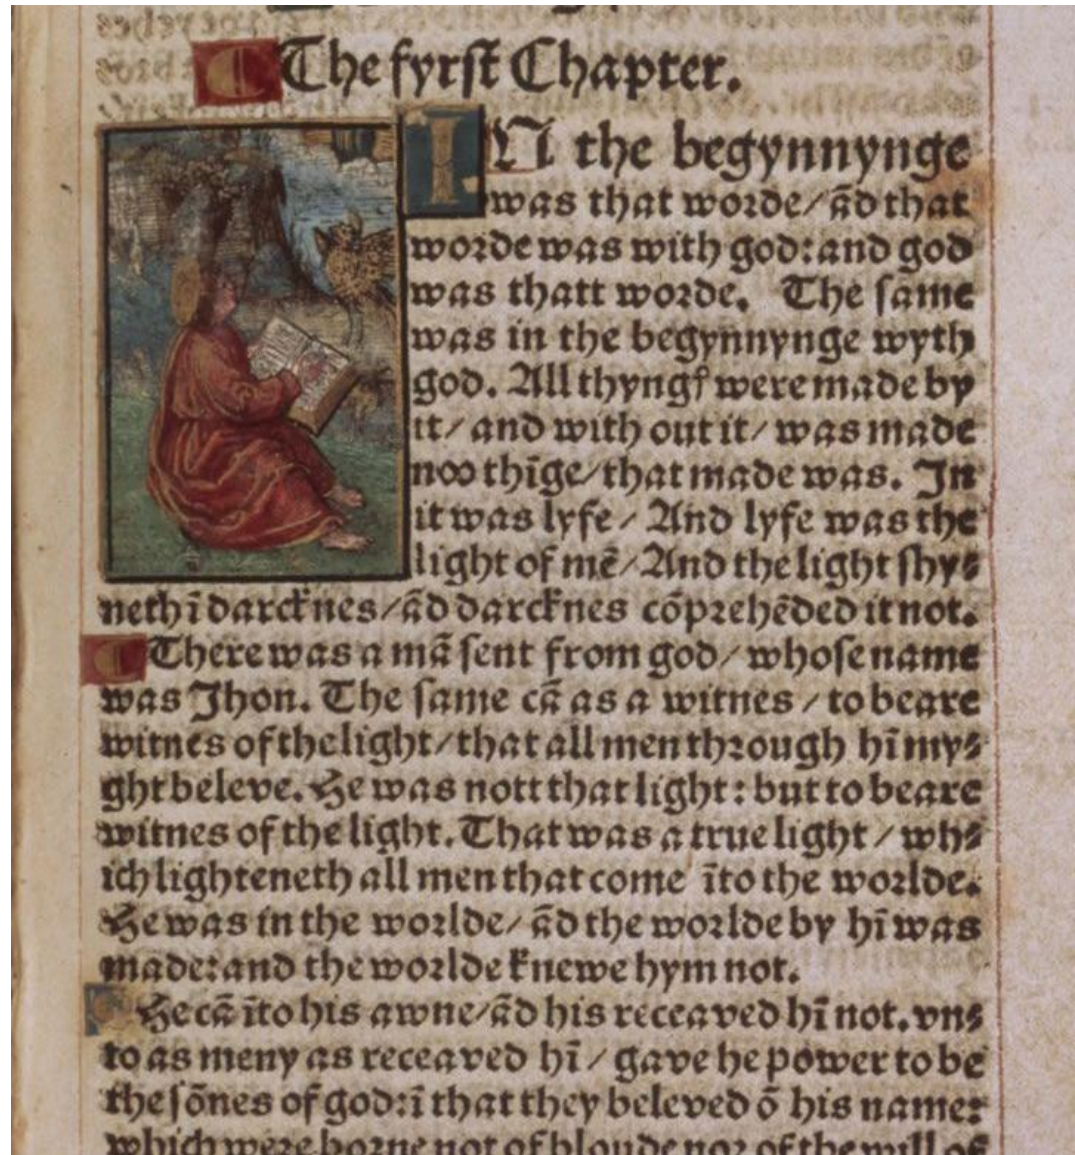 ¶ The fyrst Chapter.
IN the begynnynge
was that worde/ ād that
worde was with god: and god
was thatt worde. The same
was in the begynnynge wyth
god. All thyngꝭ were made by
it/ and with out it/ was made
noo thīge/ that made was. In
it was lyfe/ And lyfe was the
light of mē/ And the light shy⸗
neth ī darcknes/ ād darcknes cōprehēded it not.
¶ There was a mā sent from god/ whose name
was Jhon. The same cā as a witnes/ to beare
witnes of the light/ that all men through hī my⸗
ght beleve. He was nott that light: but to beare
witnes of the light. That was a true light/ wh⸗
ich lighteneth all men that come īto the worlde.
He was in the worlde/ ād the worlde by hī was
made: and the worlde knewe hym not.
He cā īto his awne/ ād his receaved hī not. vn⸗
to as meny as receaved hī/ gave he power to be
the sōnes of god: ī that they beleved ō his name:
which were borne not of bloude nor of the will of